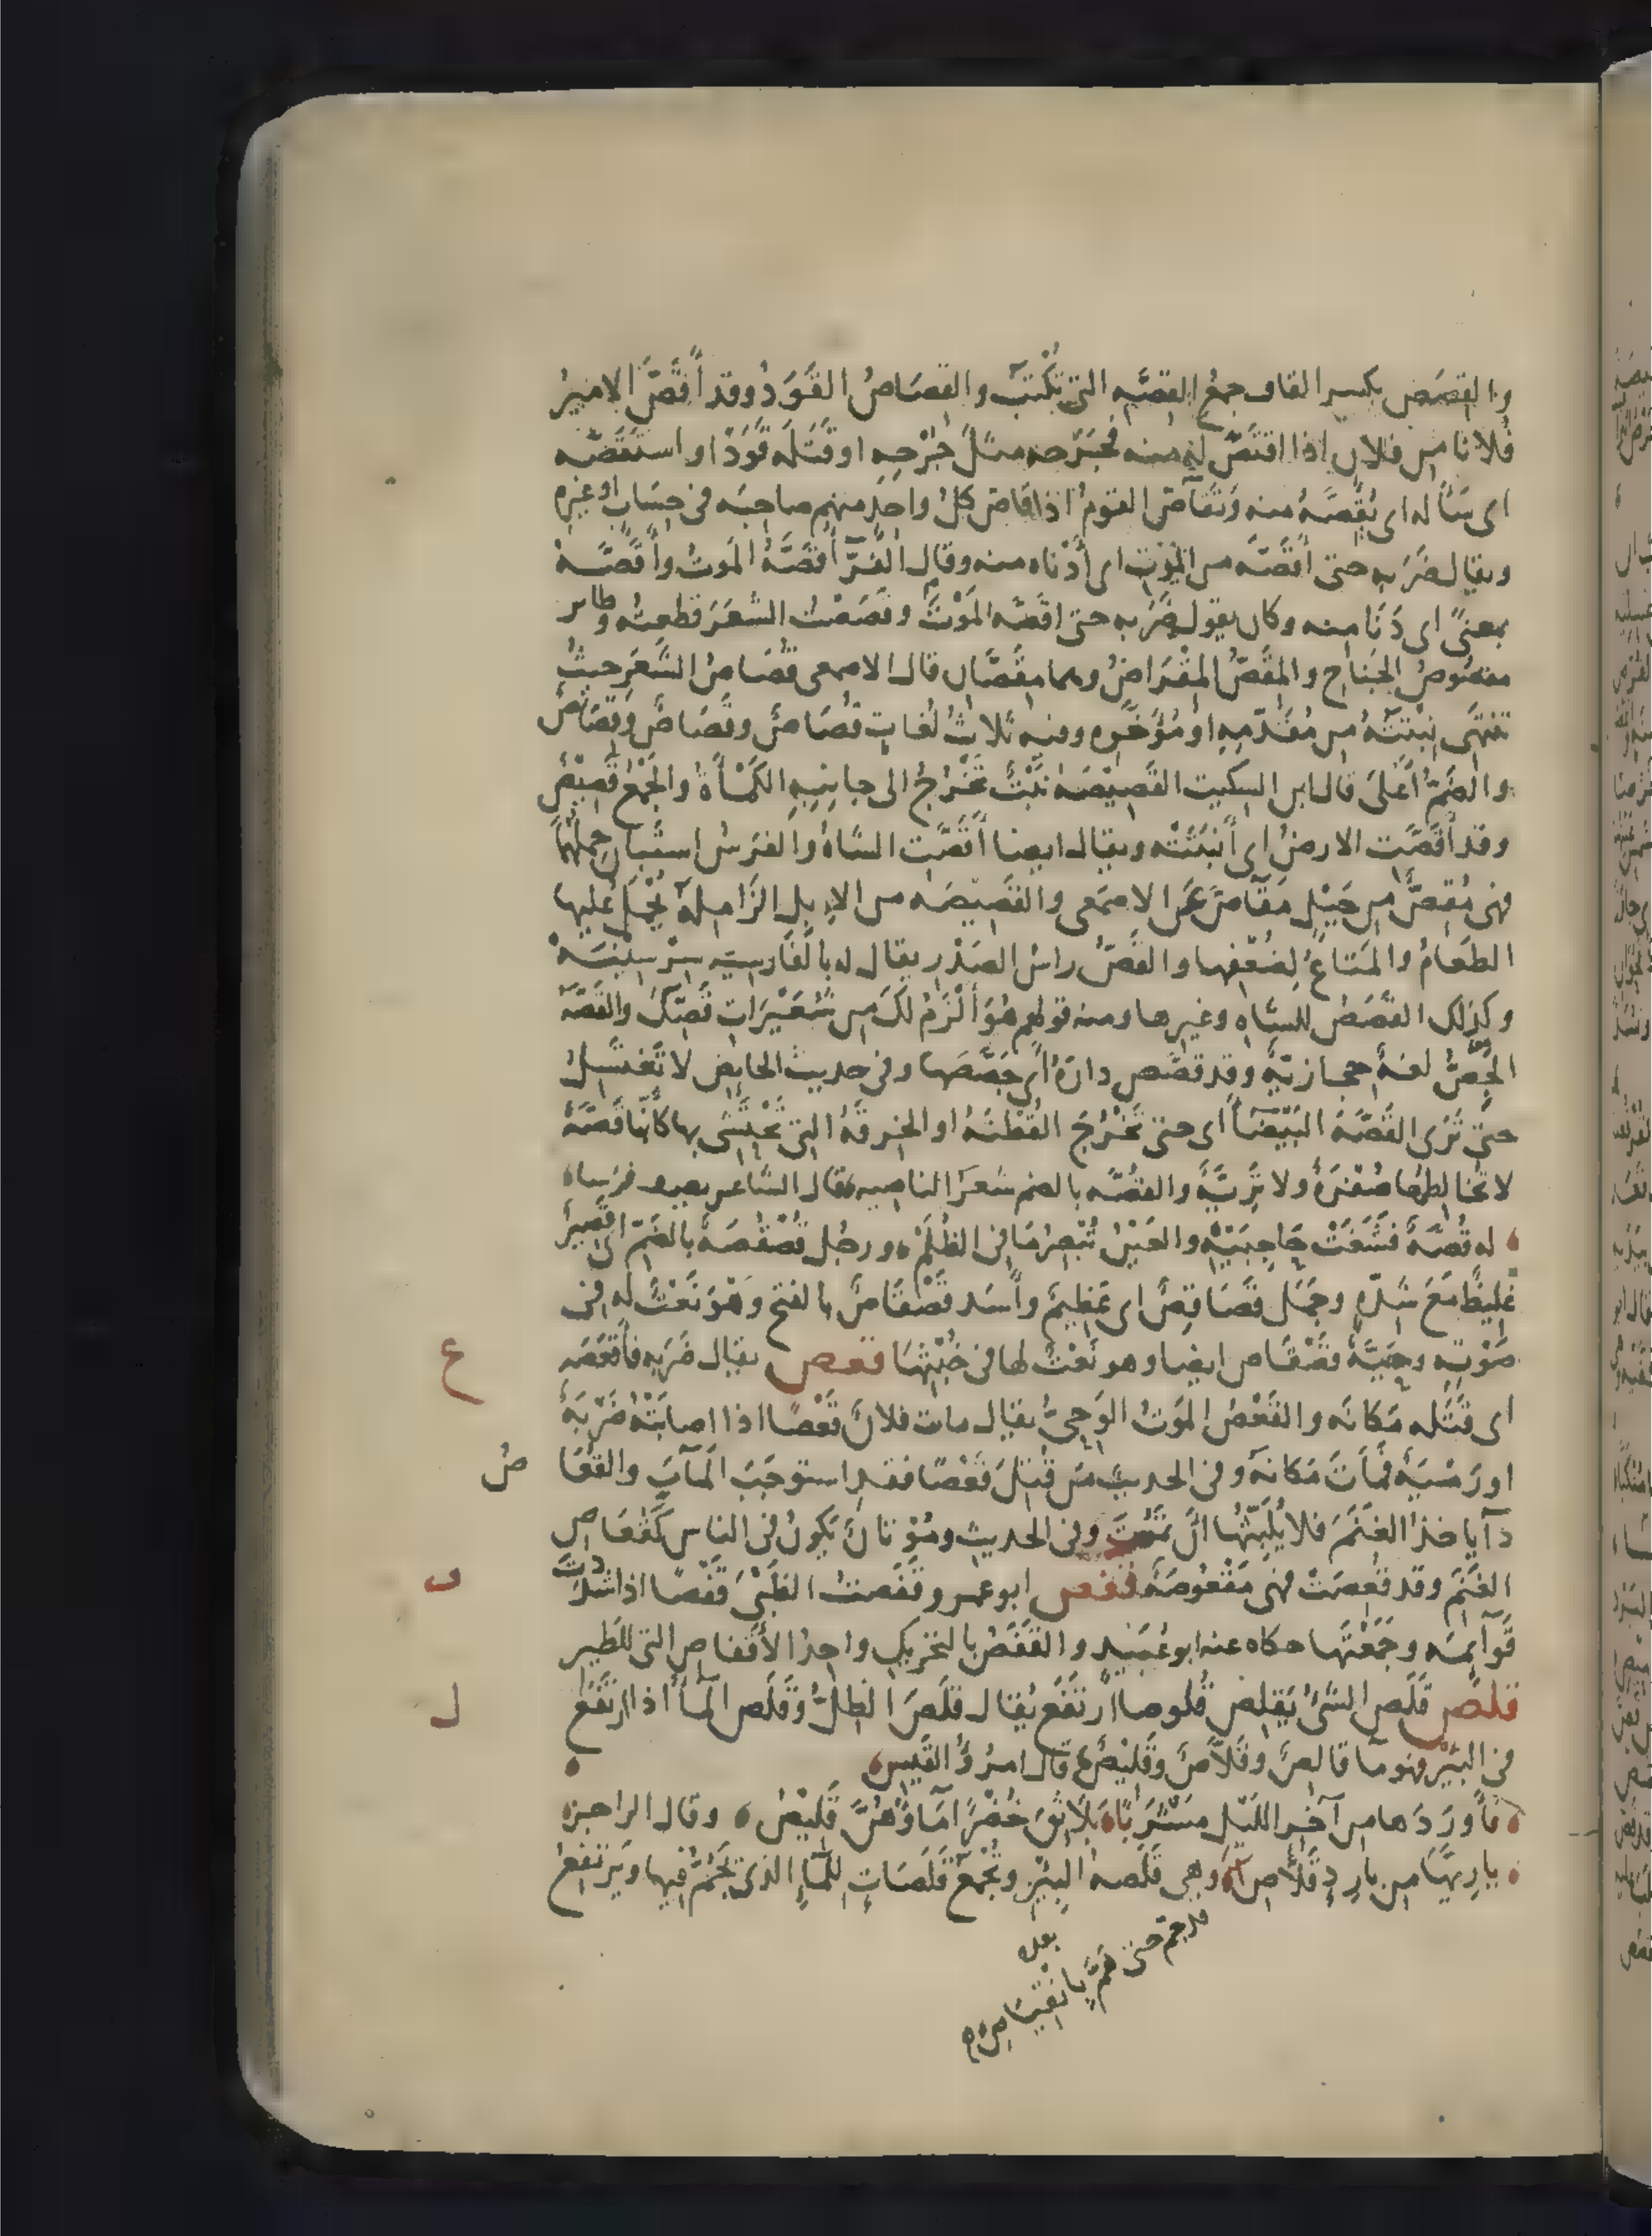 والقِصَص بكسر القاف جمعُ القصَّه التى تُكْتَبُ والقِصَاصُ القَوَدُ وقد أَقَصَّ الامِيرُ
فلانا من فلان اذا اقتَصَّ له منه فجَرَحه مثلَ جُرْحِه او قَتَلَه قَوَدًا واستَقَصَّه
اى سَأله اى يُقِصَّهُ منه وتَقَاصَّ القومُ اذا قاصَّ كلُّ واحِدٍ منهم صاحِبَه فى حِسَابٍ او غيره
ويقال ضَرَبه حتى أَقَصَّه من الموتِ اى أَدْنَاه منه وقال الفَرَّا أَقَصَّهُ الَموتُ وأَقَصَّهُ
بمعنىً اى دَنَا منه وكان يقول ضَرَبه حتى اقَصَّه المَوْتُ وقَصَصْتُ الشعَرَ قطعتُه وطاير
مقصُوصُ الجَناح والمِقَصُّ المِقْرَاضُ وهما مِقَصَّان قال الاصمعى قُصَاصُ الشَّعَرِ حيثُ
تنتهَى نِبْتَتُهُ من مُقَدّمِهِ او مُؤَخَّرِه وفيه ثلاثُ لُغاتٍ قُصَاصٌ وقَصَاصٌ وقِصَاصٌ
والضَمُّ أَعْلَى قال ابن السكيت القَصِيْصَه نَبْتٌ تَخْرُجُ الى جانِبِهِ الكَمْأَةُ والجَمْعُ قَصِيْصٌ
وقد أَقَصَّت الارضُ اى أَنبَتَتْه ويقال ايضا أَقَصَّت الشاةُ والفَرَسُ استَبَان حملهُا
فهى مُقِصٌّ من خَيْلٍ مَقَاصَّ عَن الاصمَعى والقَصِيْصَه من الابل الزَامِلَةُ يُحْمَلُ عليها
الطعَامُ والمَتَاعُ لِضُعْفِها والقَصُّ راسُ الصَدْرِ يقال له بالفَارسيه سِرْسِيْنَهْ
وكذلك القَصَصُ للشاه وغيرها ومنه قولهم هُوَ أَلْزَمُ لَكَ من شُعَيْرَاتِ قَصِّكَ والقَصَّهُ
الجِصُّ لغةٌ حجازيّةٌ وقد قصَّص دارَهُ أى جَصَّصَها وفى حديث الحايض لا تَغتَسِلُ
حتى تَرَى القَصَّهَ البَيْضَآ أى حتى تَخْرُجَ القُطْنَهُ او الخِرقَهُ التى تَحْتَشِى بها كأَنّها قَصَّهٌ
لا تخالِطُها صُفْرَةٌ ولا تَرِيَّةٌ والقُصَّه بالضم شعَرُ الناصِيه قال الشاعر يصف فرسا ه
له قُصَّةٌ فَشَغَتْ حَاجِبَيْهِ والعَيْنُ تُبْصِرُ مَا فى الظُلَمْ ه ورجُل قُصْقُصَهٌ بالضَمّ أى قَصِيرٌ
غليظٌ مَعَ شدّهٍ وجَمَل قُصَاقِصٌ اى عَظِيمٌ وأَسَد قَصْقَاصٌ بالفتح وَهْوَ نَعْتٌ له فى
صَوْتِه وحَيَّةٌ قَصْقَاص ايضا وهو نَعْتٌ لها فى خُبْثِهَا قعص يقال ضَرَبه فأَقعَصَه
ع
اى قَتَلَه مَكانَه والقَعْصُ المَوتُ الوَحِىُّ يقال مات فلانٌ قَعْصًا اذا اصابَتْهُ ضَرْبَهٌ
او رَمْيَهٌ فَمَاتَ مَكانَهُ وفى الحديث مَن قُتِلَ قَعْصًا فقد استوجَبَ المَآبَ والقُعَا
صُ
دَآ ياخذُ الغَنَمَ فلا يُلْبِثُها انْ تَمُوتَ وفى الحديث ومُوْتانٌ يكونُ فى الناس كقُعَاصِ
الغَنَم وقد قُعِصَتْ فهى مَقْعُوصَهٌ قفص ابو عمرو قَفَصتُ الظَبْىَ قَفْصًا اذا شددتَ
ف
قَوآئِمَه وجَمَعْتَها حكاه عنه ابو عُبَيْد والقَفَصُ بالتحريك واحِدُ الأَقفاصِ التى للطَيرِ
قلص قَلَصَ الشىُ يَقلِصُ قُلوصا ارتَفَع يُقال قَلَصَ الظِلُّ وقَلَص المآُ اذا ارتَفَعَ
ل
فى البيرِ فهو مآ قالِصٌ وقَلاَّصٌ وقَلِيْصٌ قال امرُؤُ القَيس
فأَورَدَها من آخرِ اللَيْلِ مَشْرَبًا بَلاثِقَ خُضْرًا مَاؤُهُنَّ قَلِيْصُ ه وقال الراجز ه
يا رِيَّهَا من بارِدٍ قَلاَّصِ ه وهى قَلَصَهُ البِيْرِ وتُجْمَعُ قَلَصَاتٍ لِلْمآءِ الذى تَجُمُّ فيها ويَرتَفِعُ
بعده
قد جم حتى هَمَّ بانْقِيَاصِ ه